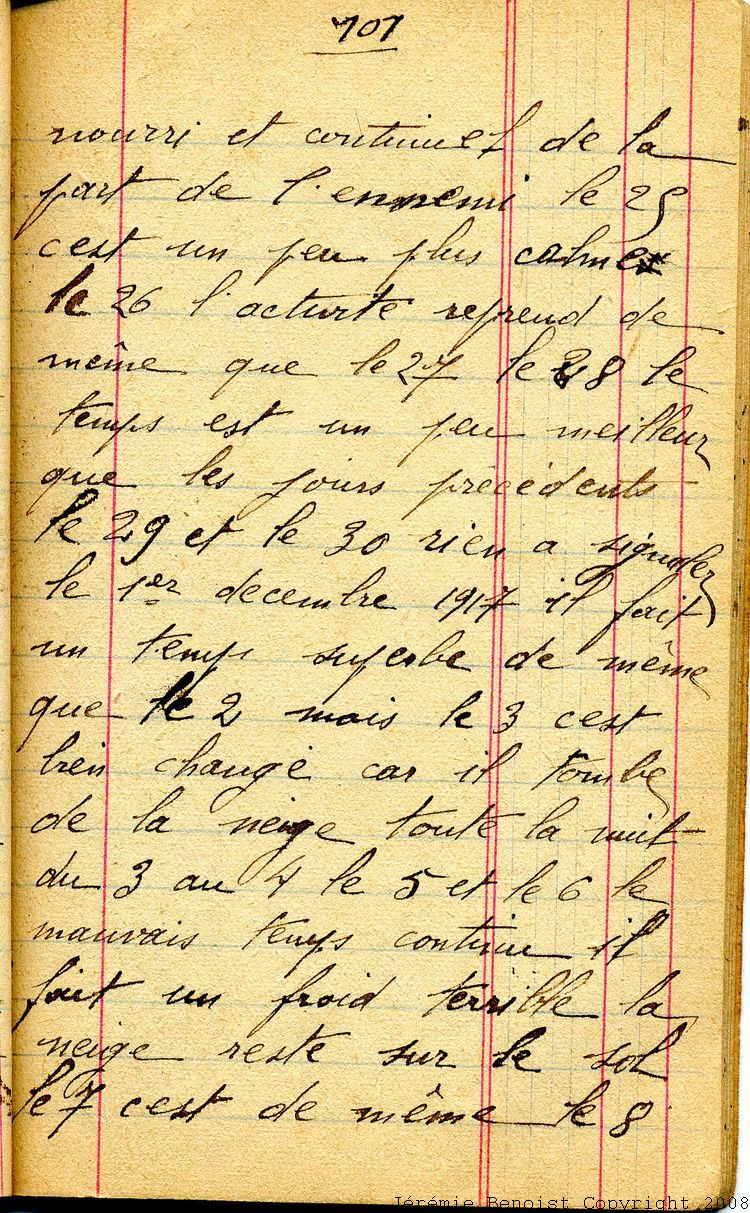 101
nourri et continuel de la
part de l'ennemi le 25
cest un peu plus calme
le 26 l'activité reprend de
même que le 27 le 28 le
temps est un peu meilleur
que les jours précédents
le 29 et le 30 rien a signaler
le 1er decembre 1917 il fait
un temp superbe de même
que le 2 mais le 3 cest
bien changé car il tombe
de la neige toute la nuit
du 3 au 4 le 5 et le 6 le
mauvais temps continu il
fait un froid terrible la
neige reste sur le sol
le 7 cest de même le 8
Jérémie Benoist Copyright 2008